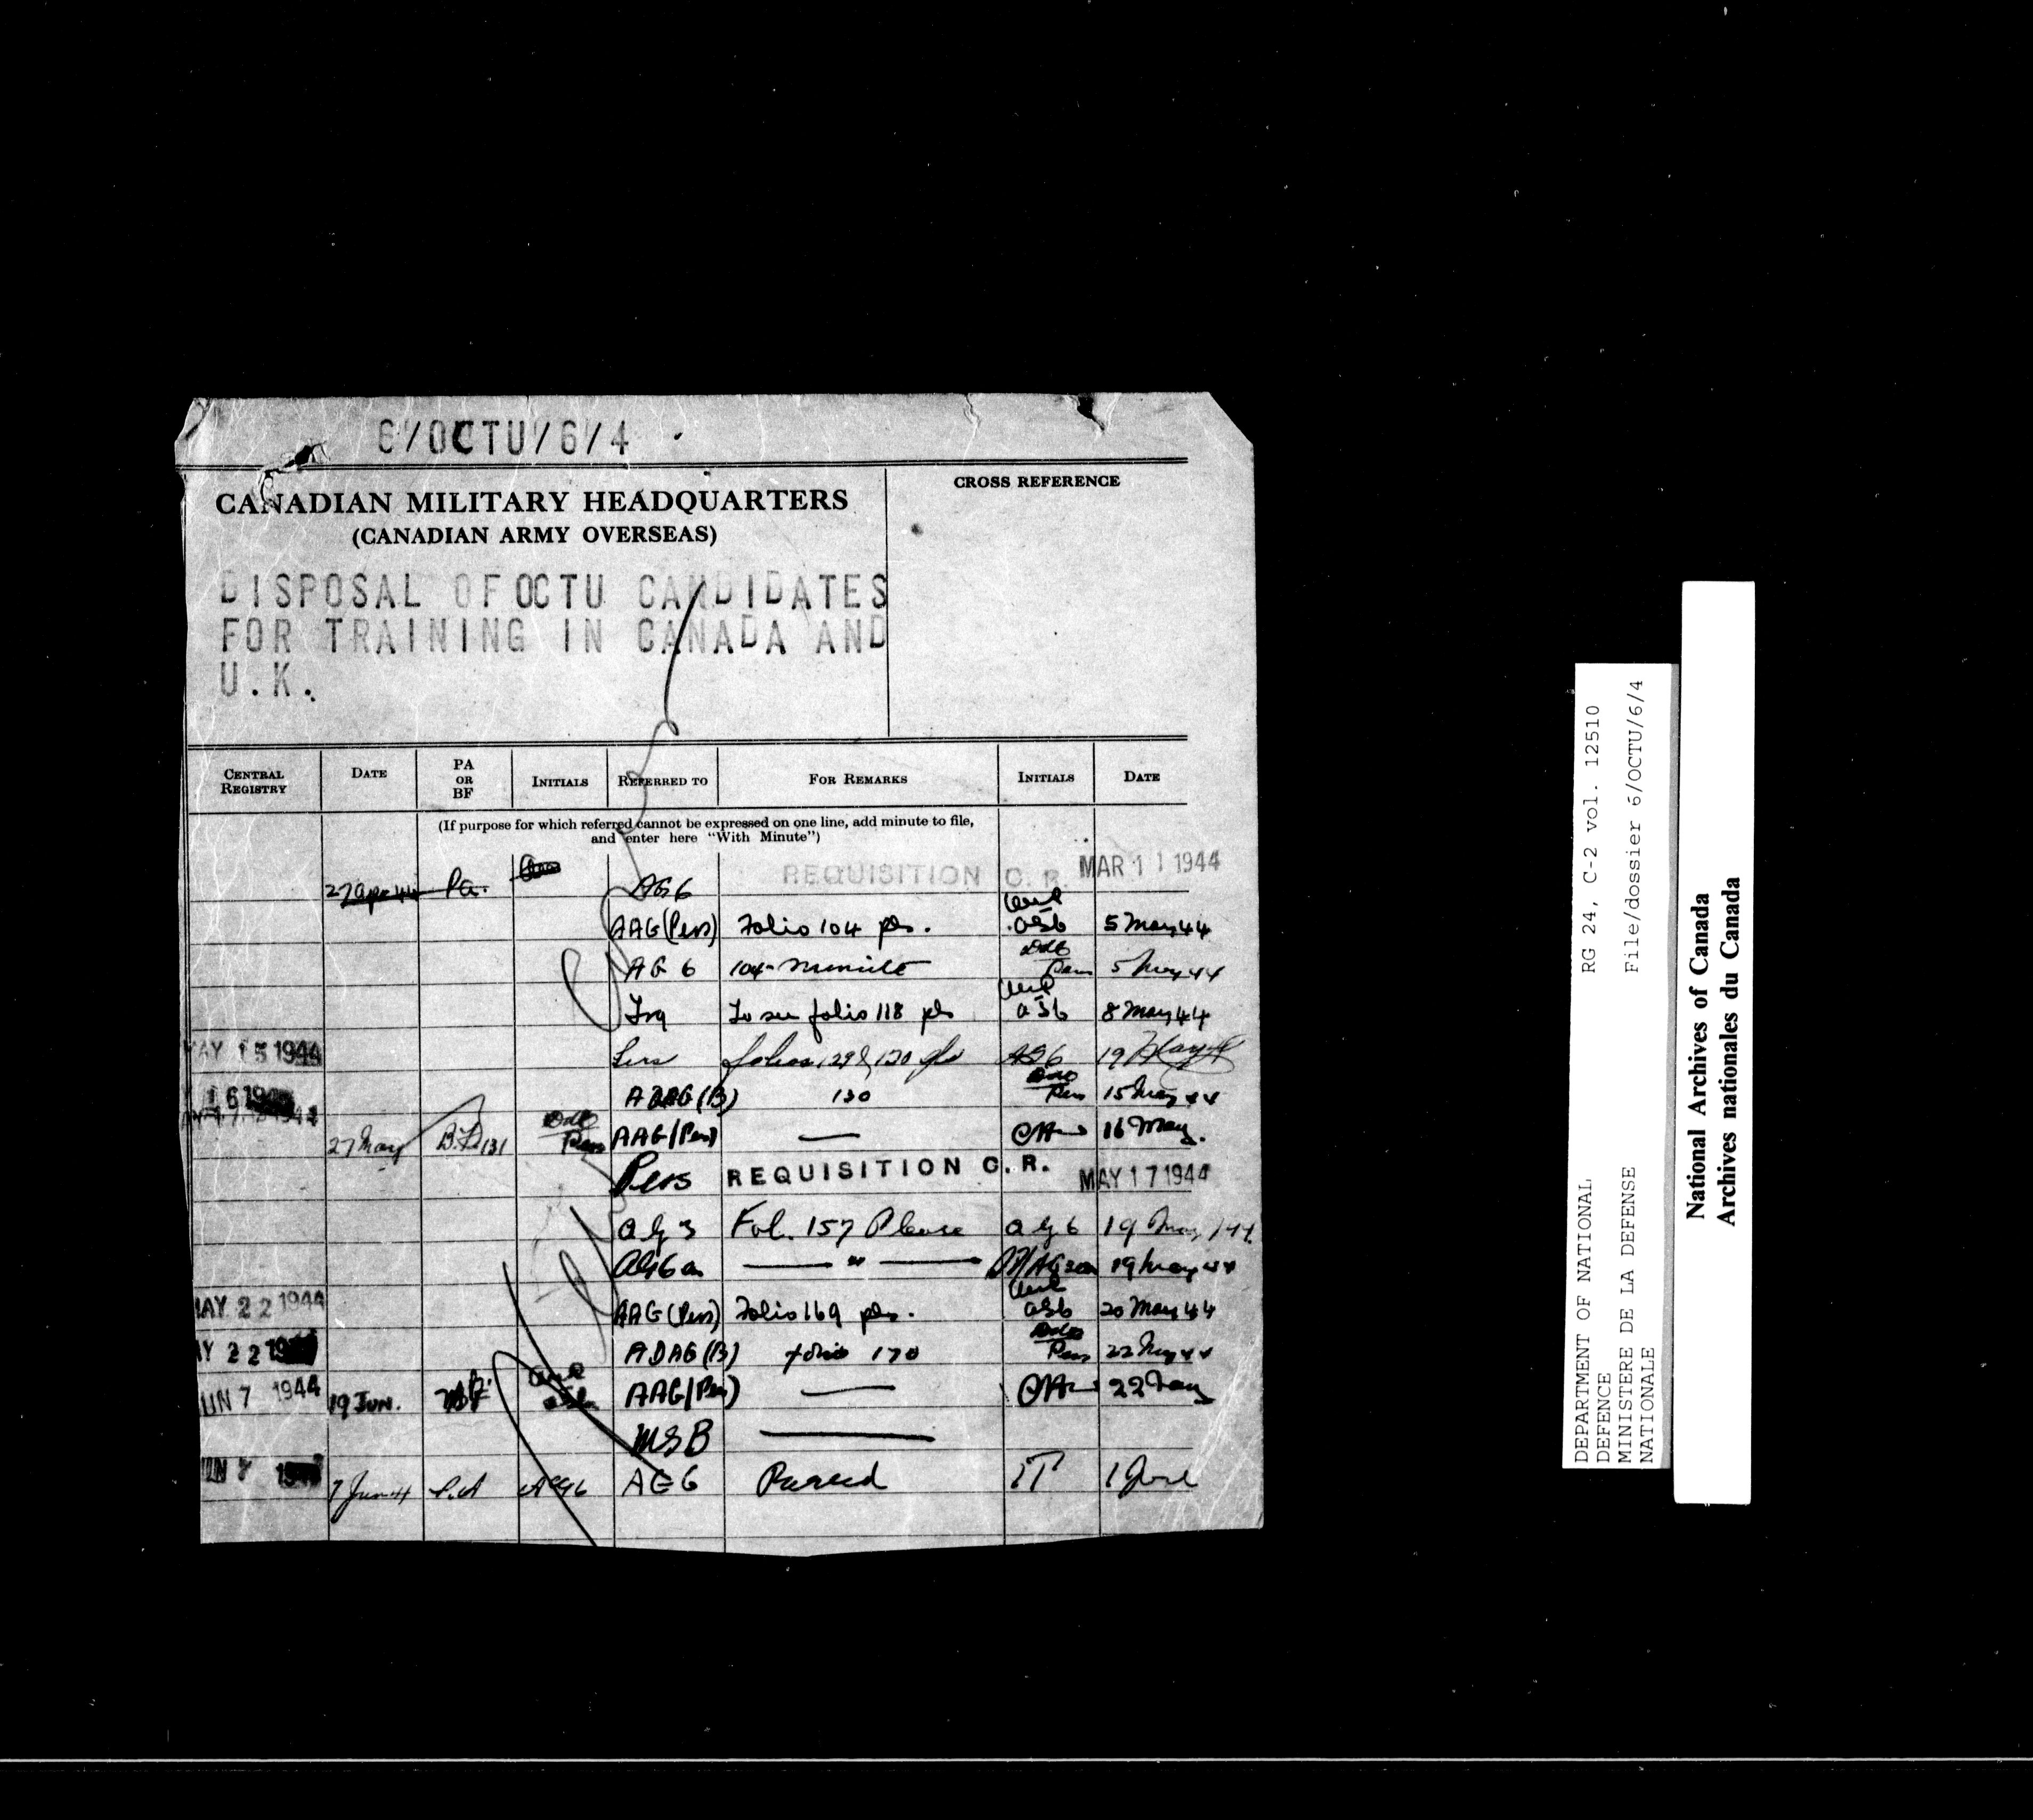 6/OCTU/6/4
CANADIAN MILITARY HEADQUARTERS
(CANADIAN ARMY OVERSEAS)
CROSS REFERENCE
DISPOSAL OF OCTU CANDIDATES
FOR TRAINING IN CANADA AND
U.K.
CENTRAL REGISTRY DATE PA OR BF INITIALS REFERRED TO FOR REMARKS INITIALS DATE
(If purpose for which referred cannot be expressed on one line, add minute to file,
and enter here "With Minute")
REQUISITION C. R. MAR 11 1944
27 Apr 44 Pa. AG 6
AAG (Pers) Folio 104 pls. AG6 5 May 44
AG 6 104 minute Pers 5 May 44
Trg To see folio 118 pls AG6 8 May 44
MAY 15 1944 Pers folios 129 & 130 pls AG6
ADAG (B) 130 Pers 15 May 44
27 May B.F. 131 Pers AAG (Pers) — 16 May.
Pers REQUISITION C. R. MAY 17 1944
AG 3 Fol. 157 Please AG 6 19 May /44.
AG6a — " — 19 May 44
MAY 22 1944 AAG (Pers) Folio 169 pls. AG6 20 May 44
AY 22 ADAG (B) folio 170 Pers 22 May 44
UN 7 1944 19 JUN. BF AAG (Pers) — 22 May
MSB —
UN 7 7 Jun 44 P.A AG6 AG 6 Perused IT 1 June
DEPARTMENT OF NATIONAL
DEFENCE
MINISTERE DE LA DEFENSE
NATIONALE
RG 24, C-2 vol. 12510
File/dossier 6/OCTU/6/4
National Archives of Canada
Archives nationales du Canada